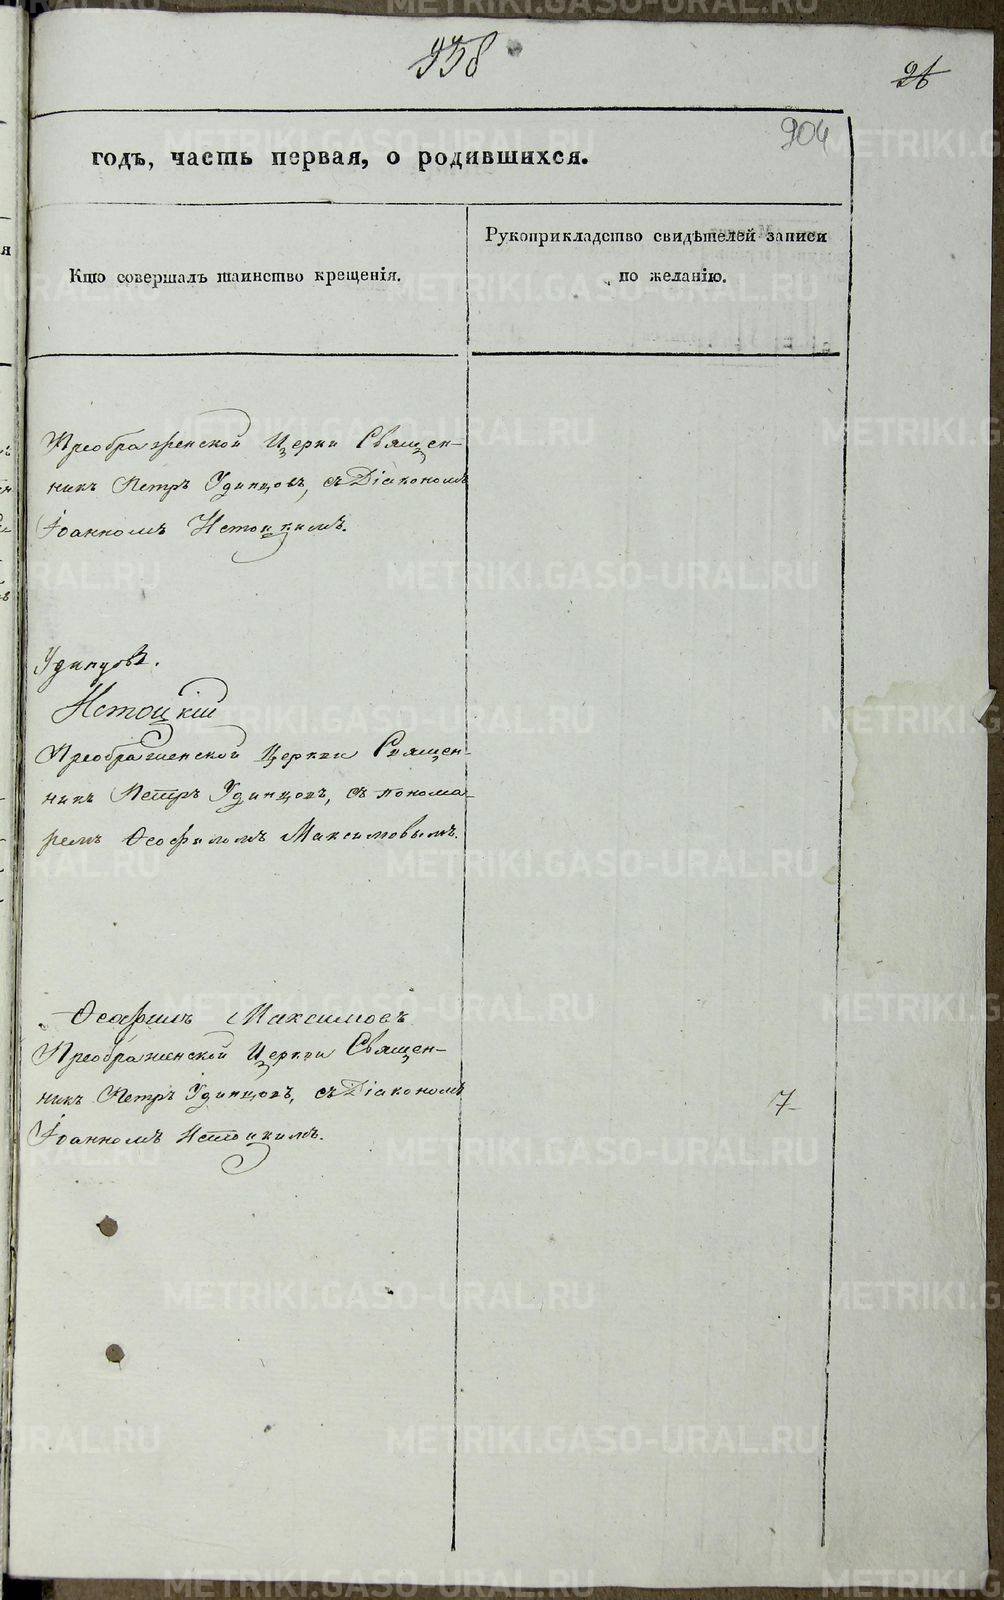 938
26
904
годъ, часть первая, о родившихся.
Кто совершалъ таинство крещенія.
Рукоприкладство свидѣтелей записи
по желанію.
Преображенской Церкви Священ-
никъ Петръ Удинцовъ, съ Діакономъ
Іоанномъ Истоцкимъ.
Удинцовъ.
Истоцкій
Преображенской Церкви Священ-
никъ Петръ Удинцовъ, съ понома-
ремъ Ѳеофиломъ Максимовымъ.
Ѳеофилъ Максимовъ
Преображенской Церкви Священ-
никъ Петръ Удинцовъ, съ Діакономъ
Іоанномъ Истоцкимъ.
7
METRIKI.GASO-URAL.RU